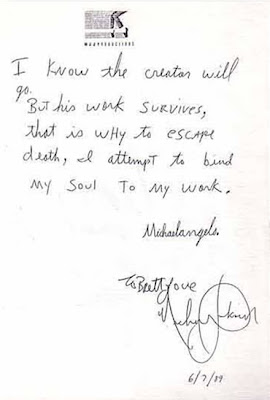 MJJ PRODUCTIONS
I KNOW the creator will
go.
But his work SURVIVES,
that is WHY to ESCAPE
death, I attempt to bind
MY SOUL TO MY WORK.
Michaelangelo
To Brett Love
6/7/89